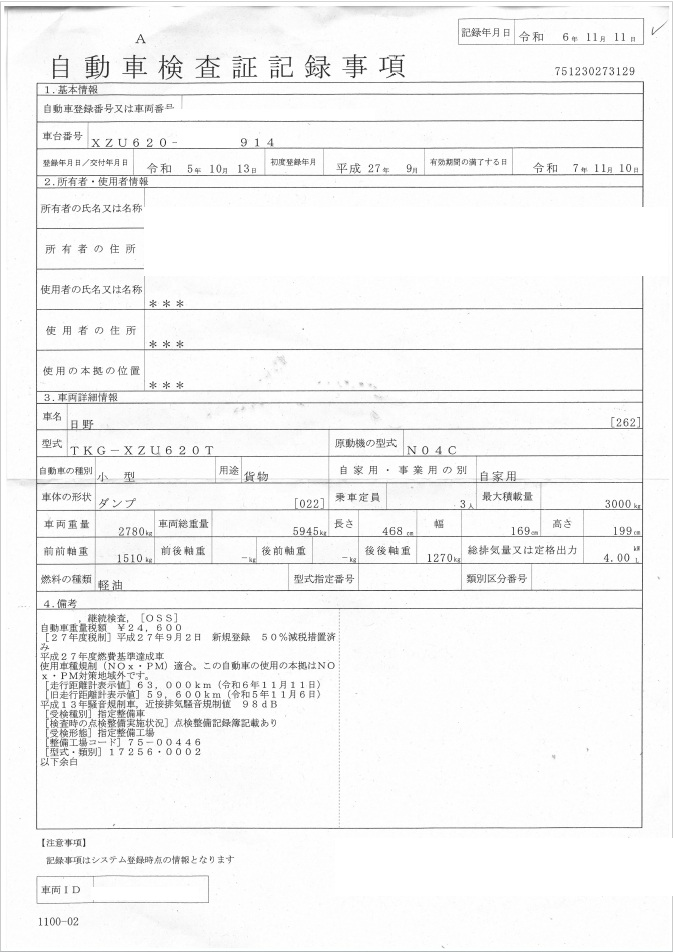 記録年月日 令和 6年 11月 11日
A
自動車検査証記録事項
751230273129
1.基本情報
自動車登録番号又は車両番号
車台番号 XZU620- 914
登録年月日/交付年月日 令和 5年 10月 13日 初度登録年月 平成 27年 9月 有効期間の満了する日 令和 7年 11月 10日
2.所有者・使用者情報
所有者の氏名又は名称
所有者の住所
使用者の氏名又は名称 ***
使用者の住所 ***
使用の本拠の位置 ***
3.車両詳細情報
車名 日野 [262]
型式 TKG-XZU620T 原動機の型式 N04C
自動車の種別 小型 用途 貨物 自家用・事業用の別 自家用
車体の形状 ダンプ [022] 乗車定員 3人 最大積載量 3000kg
車両重量 2780kg 車両総重量 5945kg 長さ 468cm 幅 169cm 高さ 199cm
前前軸重 1510kg 前後軸重 -kg 後前軸重 -kg 後後軸重 1270kg 総排気量又は定格出力 4.00 kW L
燃料の種類 軽油 型式指定番号 類別区分番号
4.備考
,継続検査,[OSS]
自動車重量税額 ¥24,600
[27年度税制]平成27年9月2日 新規登録 50%減税措置済
み
平成27年度燃費基準達成車
使用車種規制(NOx・PM)適合。この自動車の使用の本拠はNO
x・PM対策地域外です。
[走行距離計表示値]63,000km(令和6年11月11日)
[旧走行距離計表示値]59,600km(令和5年11月6日)
平成13年騒音規制車,近接排気騒音規制値 98dB
[受検種別]指定整備車
[検査時の点検整備実施状況]点検整備記録簿記載あり
[受検形態]指定整備工場
[整備工場コード]75-00446
[型式・類別]17256-0002
以下余白
【注意事項】
記録事項はシステム登録時点の情報となります
車両ID
1100-02